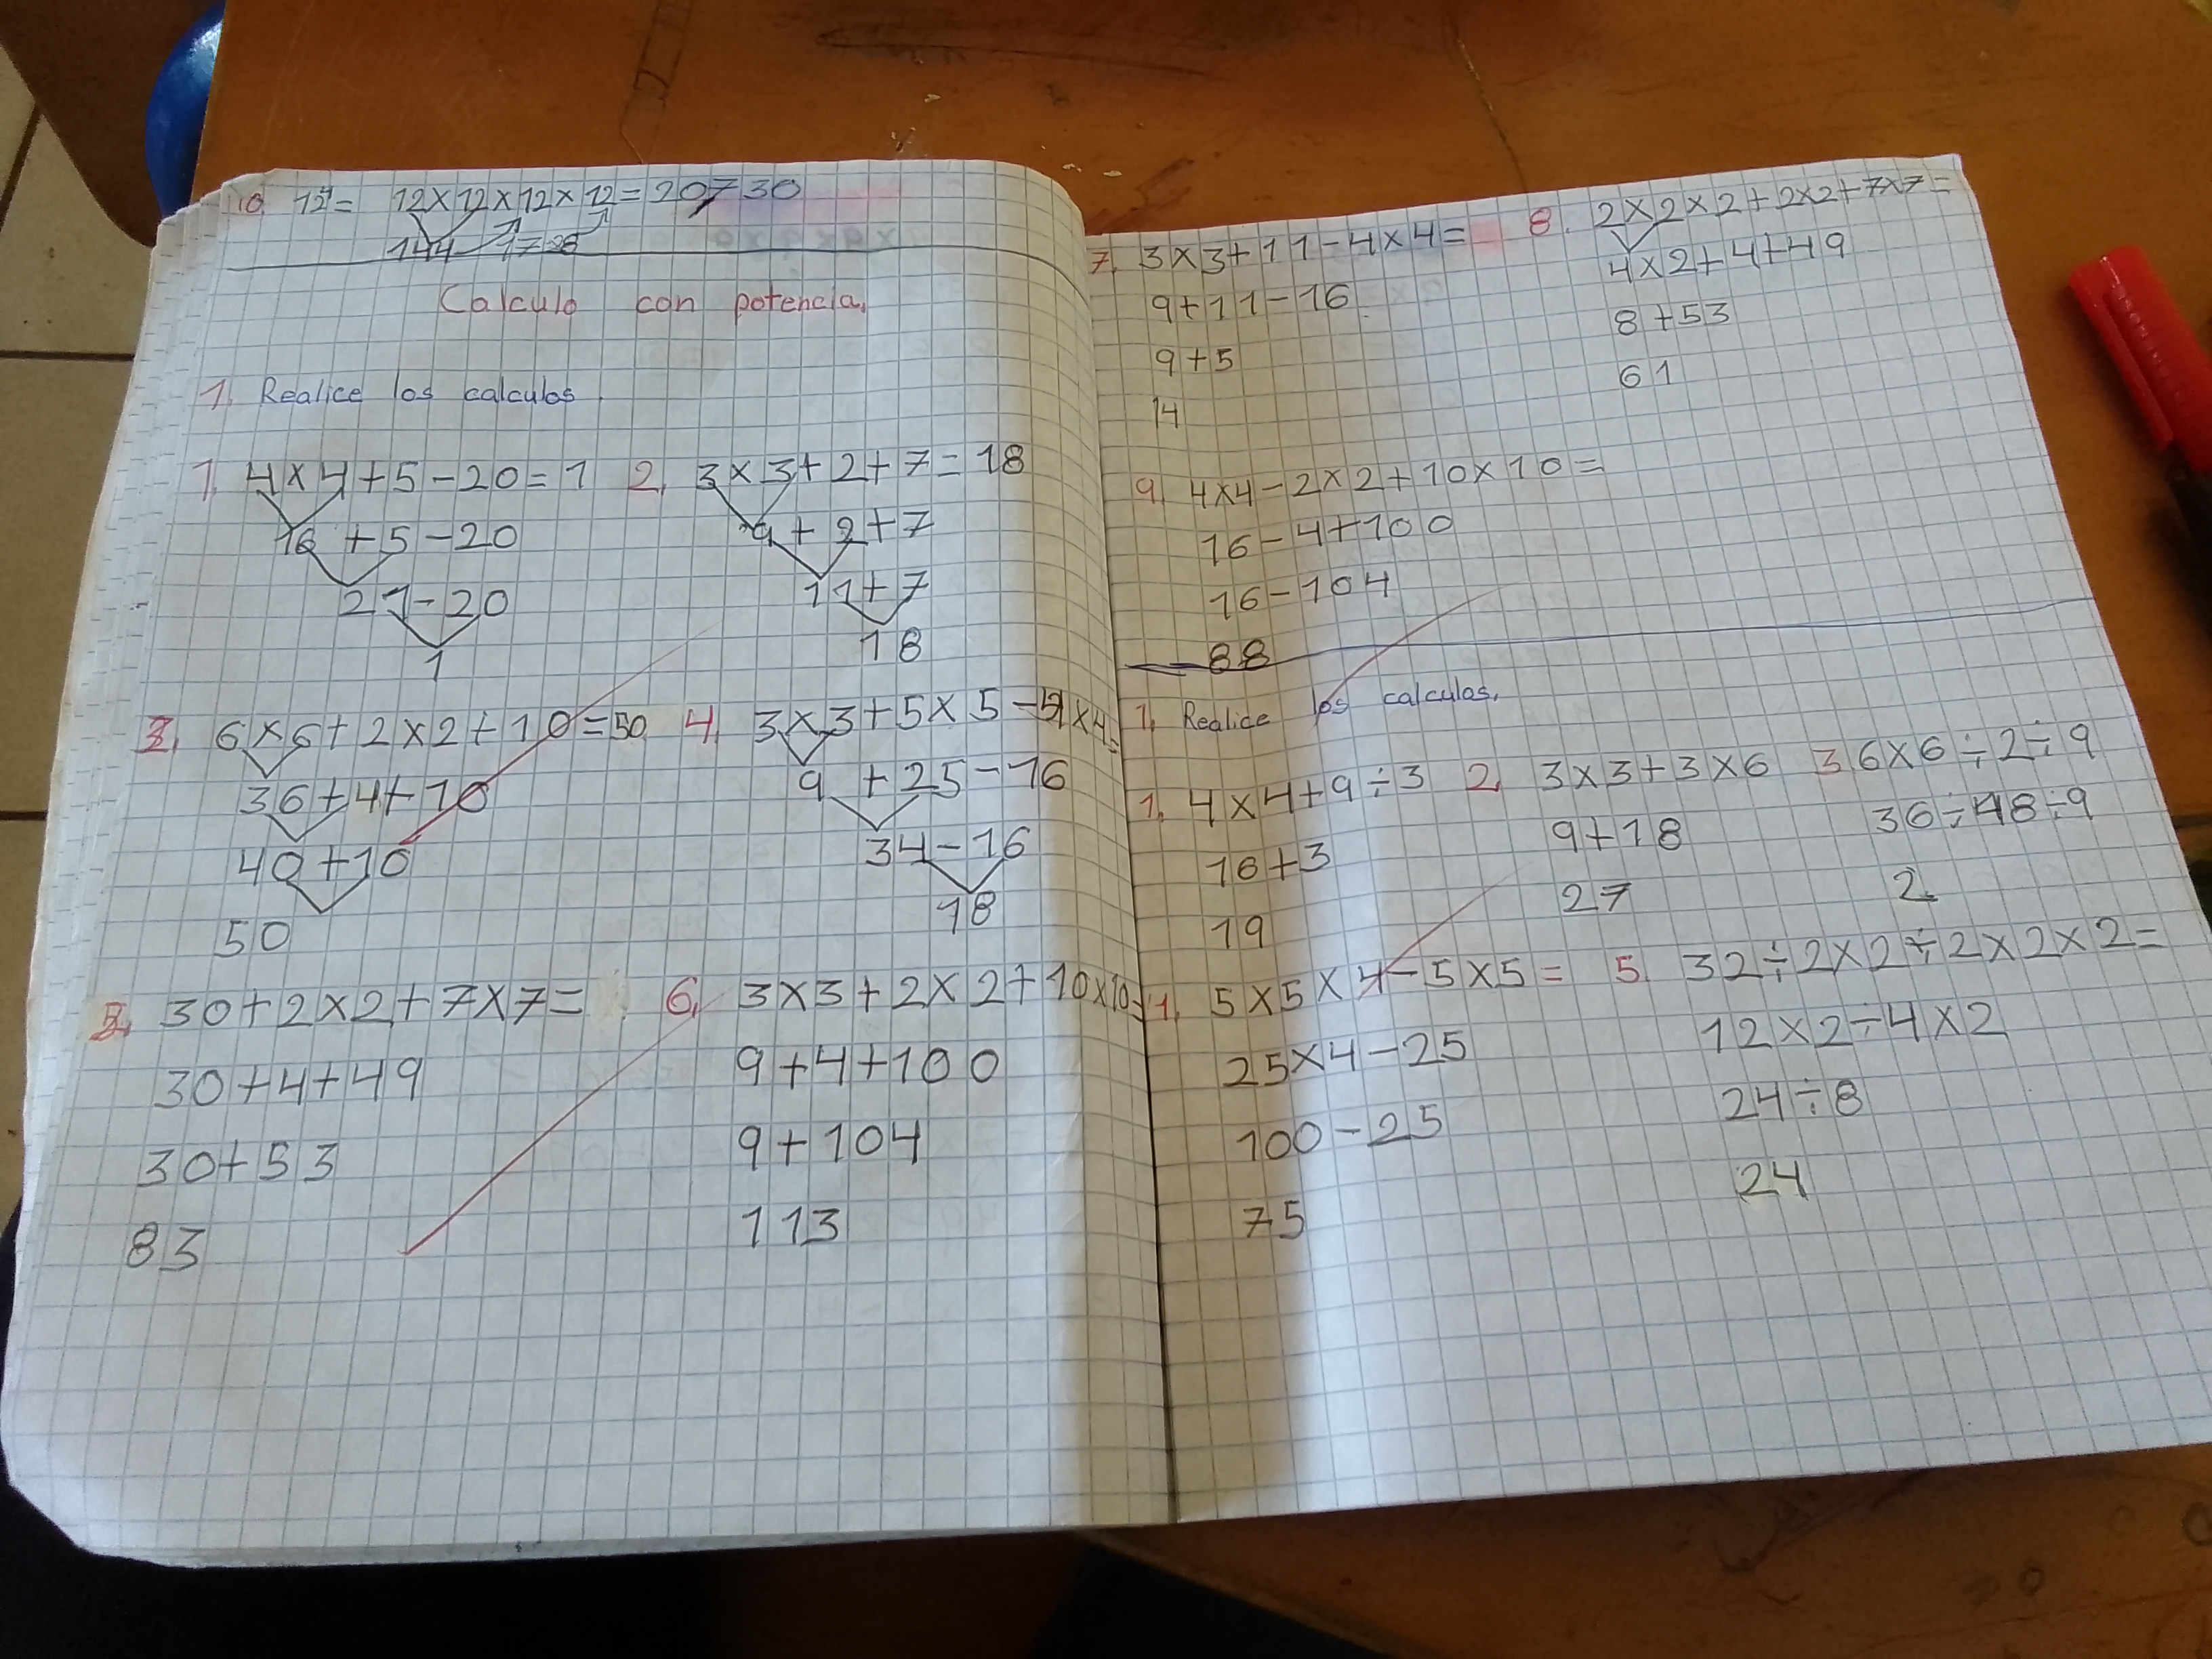 10. 12⁴ = 12×12×12×12 = 20730
144 1728
Calculo con potencia.
1. Realice los calculos.
1. 4×4+5-20=1
16+5-20
21-20
1
2. 3×3+2+7=18
9+2+7
11+7
18
3. 6×6+2×2+10=50
36+4+10
40+10
50
4. 3×3+5×5-4×4=
9+25-16
34-16
18
5. 30+2×2+7×7=
30+4+49
30+53
83
6. 3×3+2×2+10×10=
9+4+100
9+104
113
7. 3×3+11-4×4=
9+11-16
9+5
14
8. 2×2×2+2×2+7×7=
4×2+4+49
8+53
61
9. 4×4-2×2+10×10=
16-4+100
16-104
88
1. Realice los calculos.
1. 4×4+9÷3
16+3
19
2. 3×3+3×6
9+18
27
3 6×6÷2÷9
36÷18÷9
2.
1. 5×5×4-5×5=
25×4-25
100-25
75
5. 32÷2×2÷2×2×2=
12×2÷4×2
24÷8
24